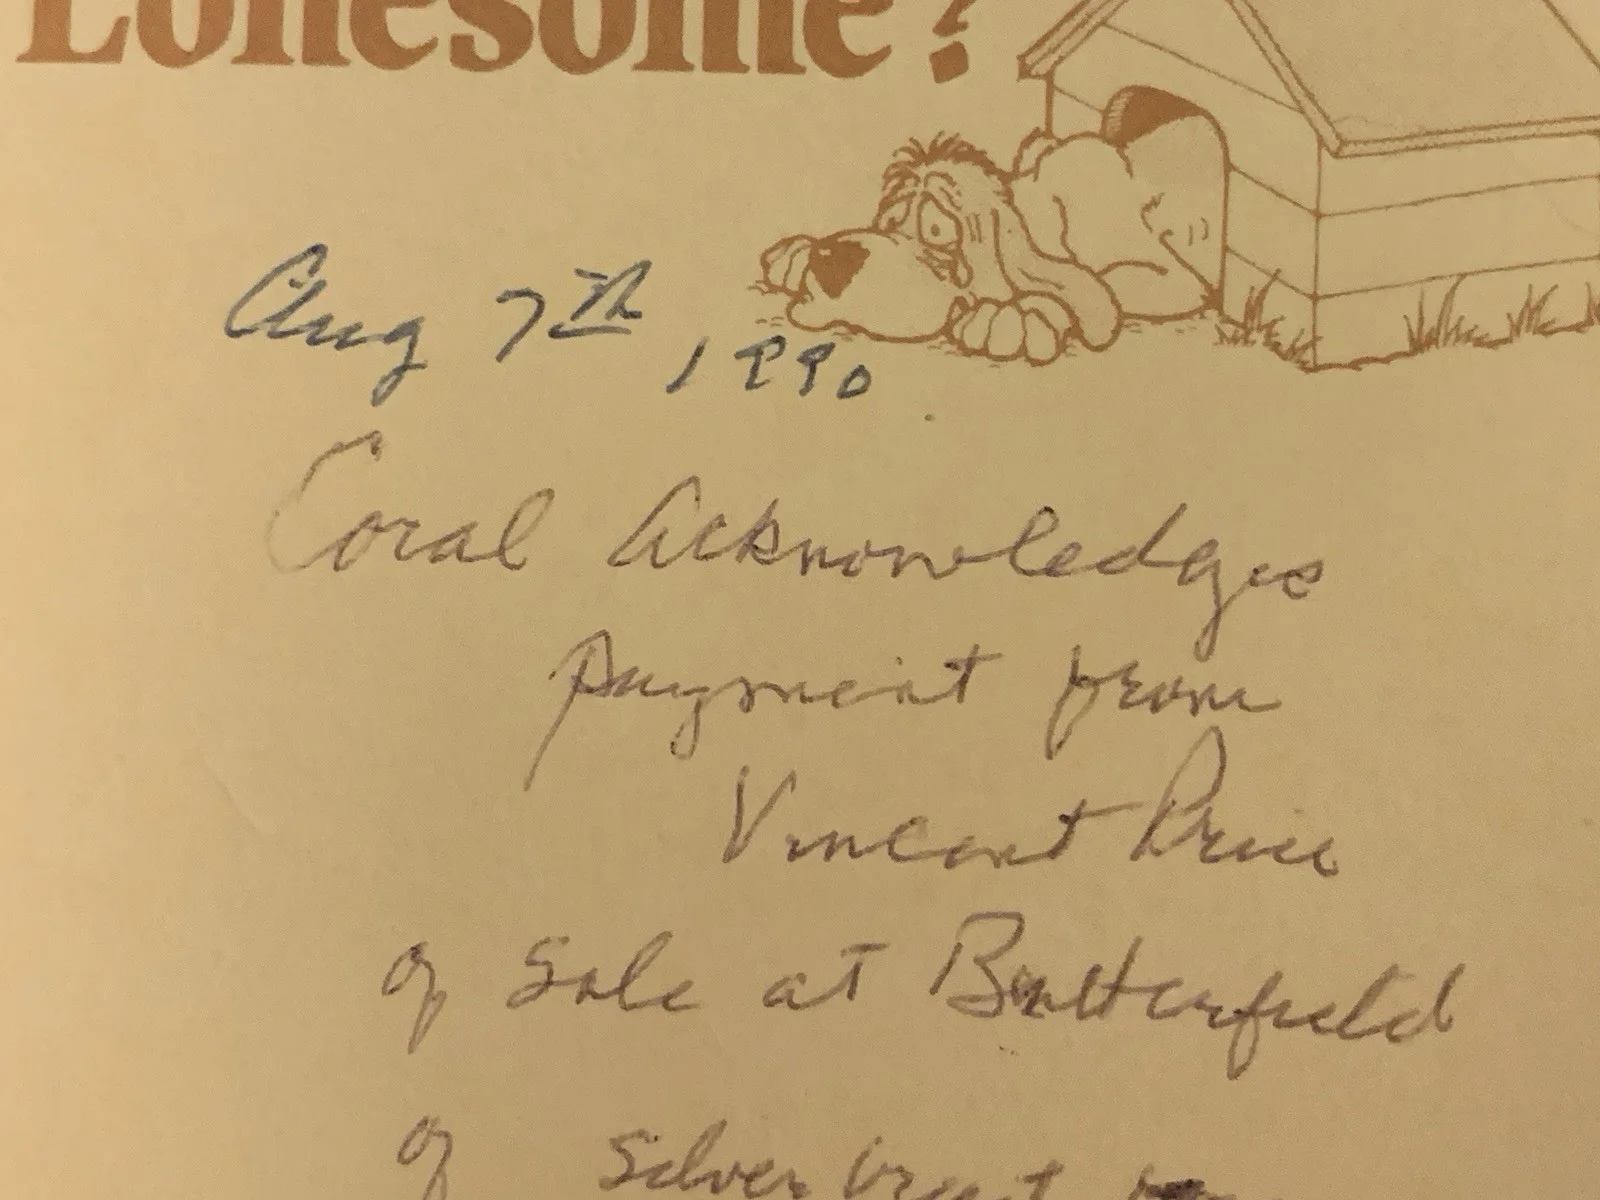 Lonesome?
Aug 7th, 1990
Coral Acknowledges
payment from
Vincent Price
of Sale at Butterfield
of Silver